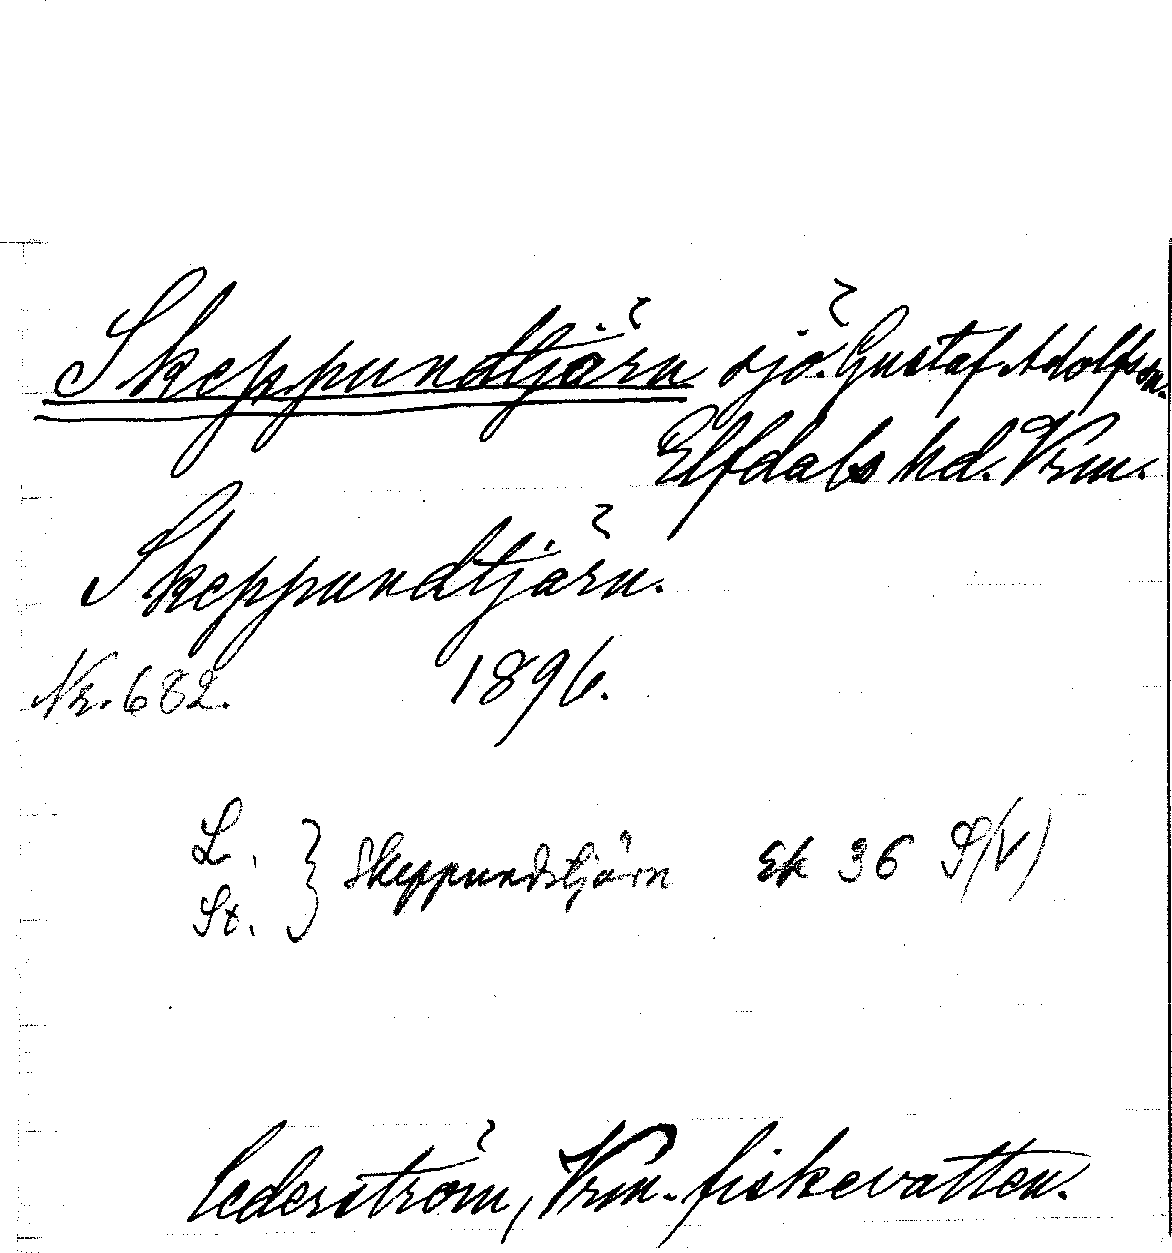 Skeppundtjärn sjö. Gustaf Adolfs sn.
Elfdals hd. Vrm.
Skeppundtjärn.
Nr. 682. 1896.
L.
St. } Skeppundstjärn Ek 36 S(V)
Cederström, Vrm. fiskevatten.